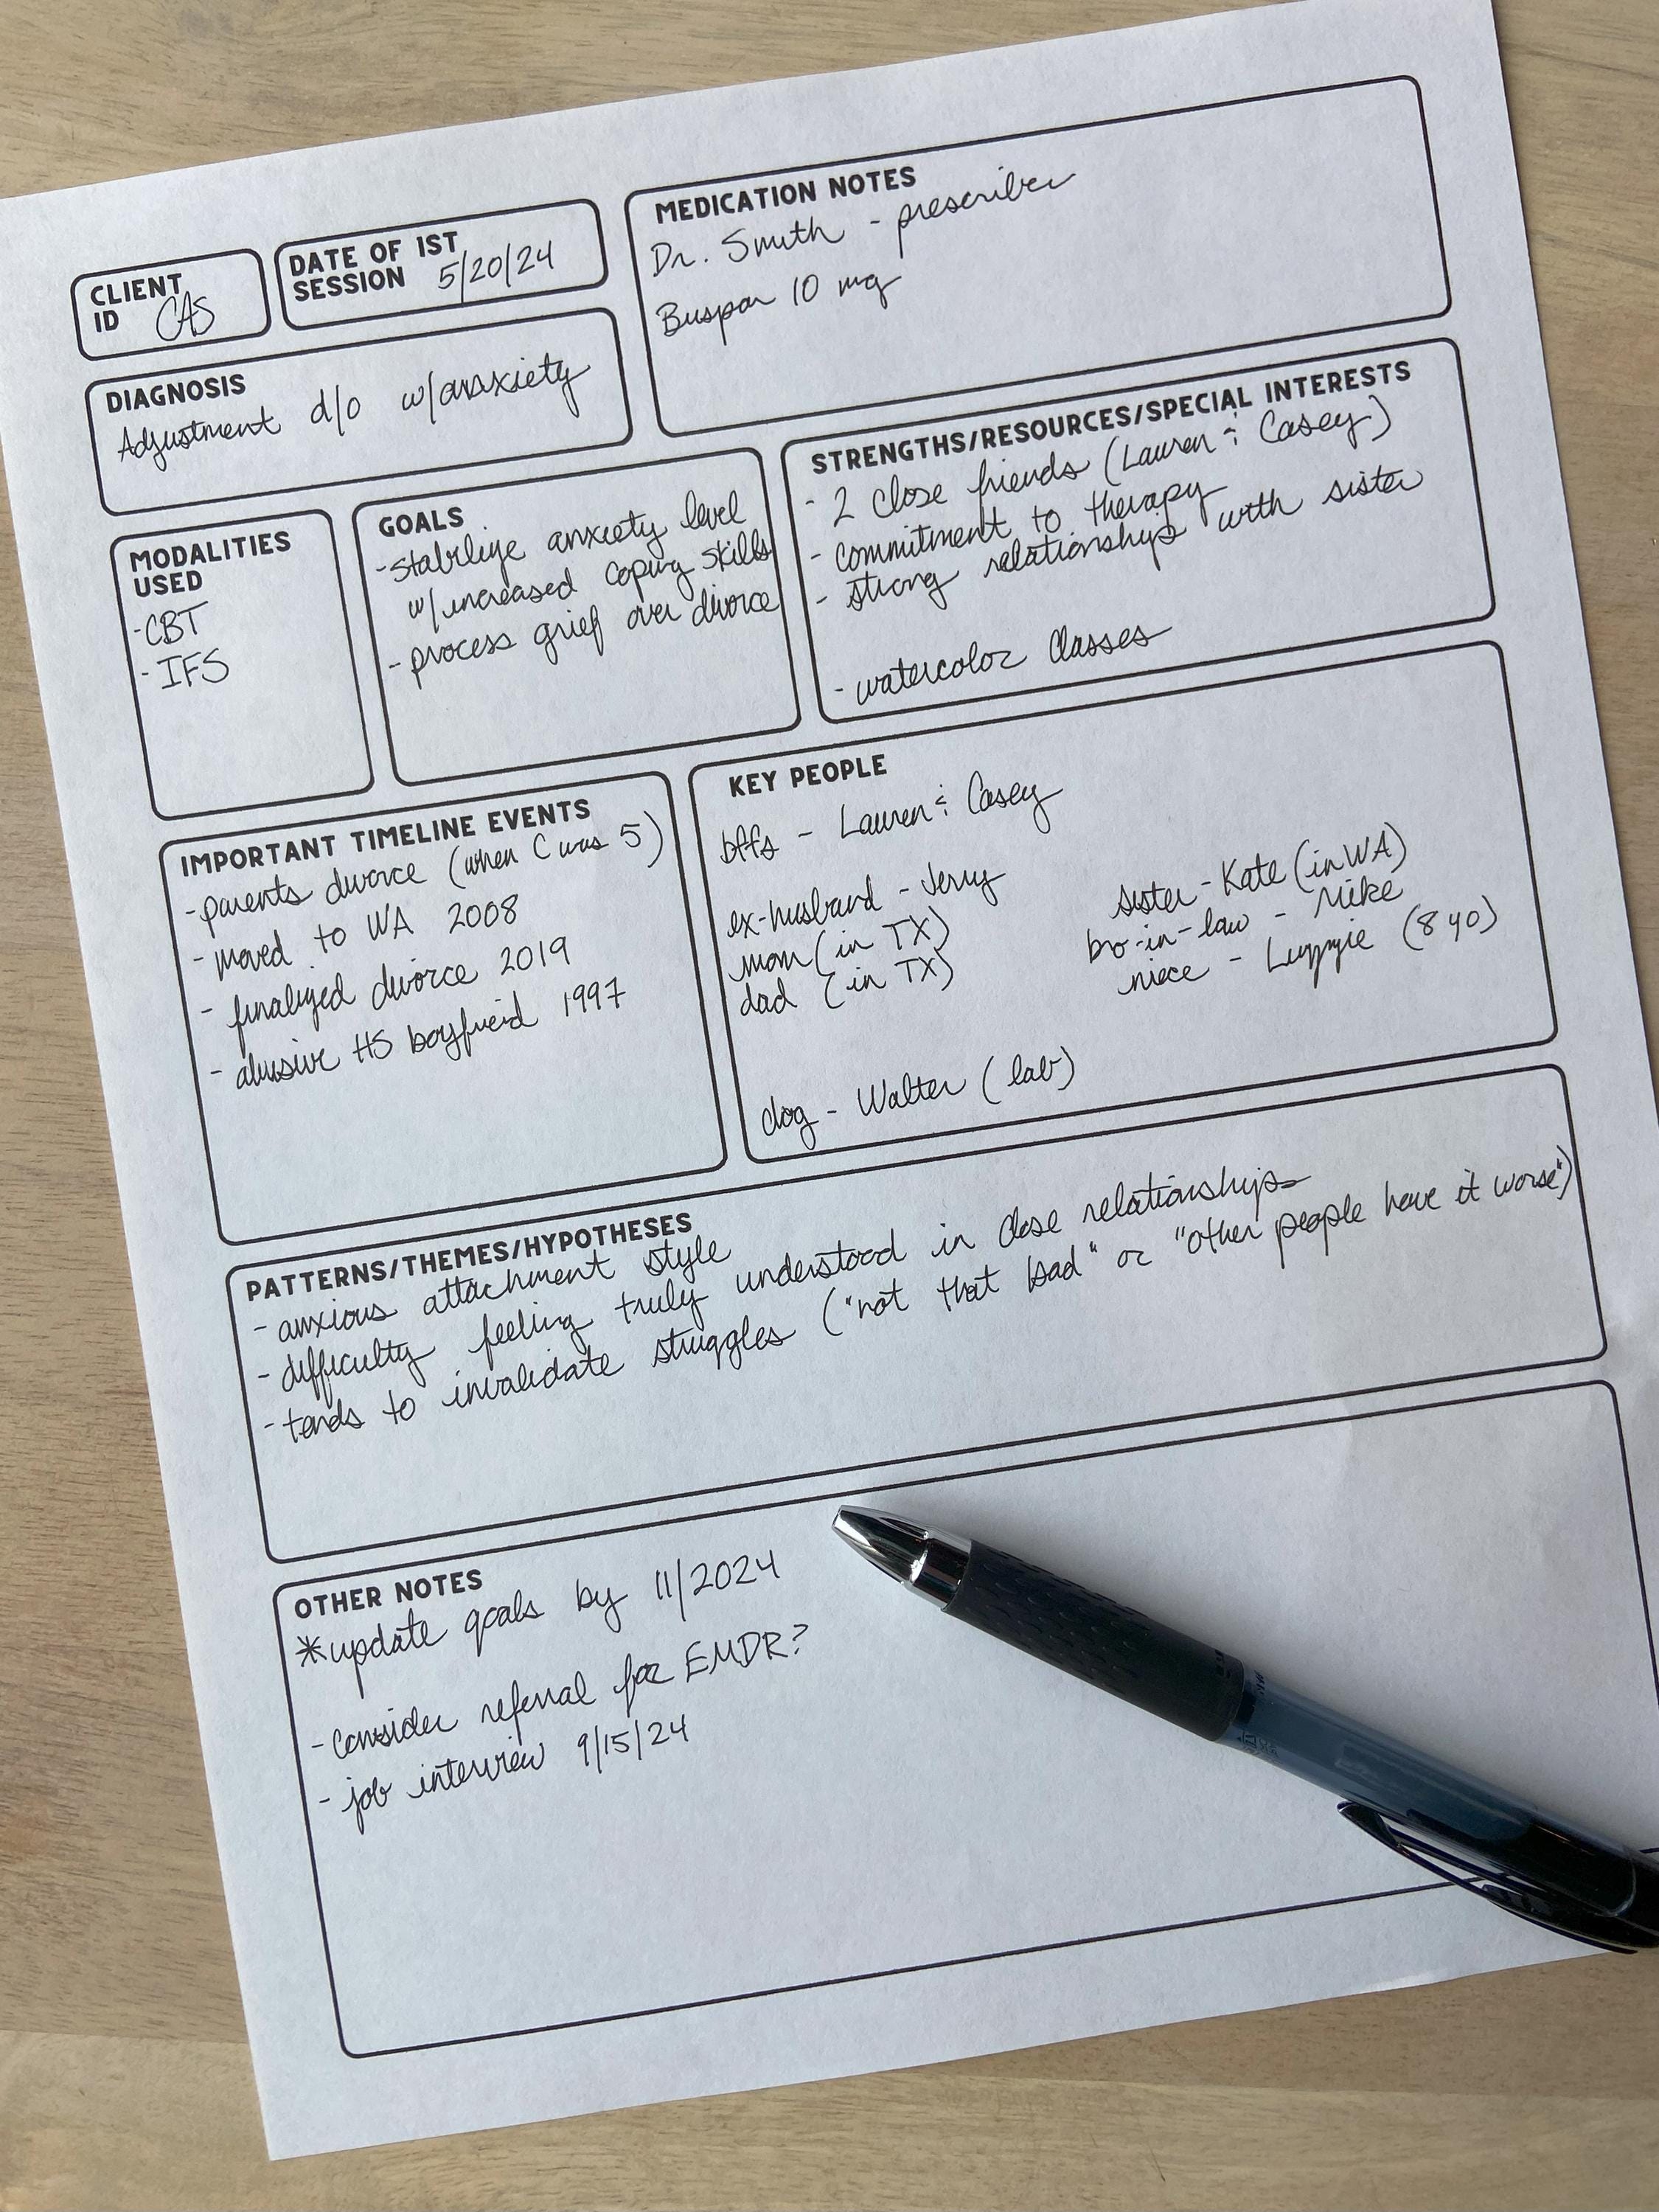 CLIENT
ID CAS
DATE OF 1ST
SESSION 5/20/24
MEDICATION NOTES
Dr. Smith - prescriber
Buspar 10 mg
DIAGNOSIS
Adjustment d/o w/anxiety
STRENGTHS/RESOURCES/SPECIAL INTERESTS
- 2 close friends (Lauren & Casey)
- commitment to therapy
- strong relationships with sister
- watercolor classes
MODALITIES
USED
- CBT
- IFS
GOALS
- stabilize anxiety level
w/increased coping skills
- process grief over divorce
IMPORTANT TIMELINE EVENTS
- parents divorce (when C was 5)
- moved to WA 2008
- finalized divorce 2019
- abusive HS boyfreid 1997
KEY PEOPLE
bffs - Lauren & Casey
ex-husband - Jerry
mom (in TX)
dad (in TX)
sister - Kate (in WA)
bro-in-law - Mike
niece - (8 yo)
dog - Walter (lab)
PATTERNS/THEMES/HYPOTHESES
- anxious attachment style
- difficulty feeling truly understood in close relationships
- tends to invalidate struggles ("not that bad" or "other people have it worse")
OTHER NOTES
*update goals by 11/2024
- consider referral for EMDR?
- job interview 9/15/24